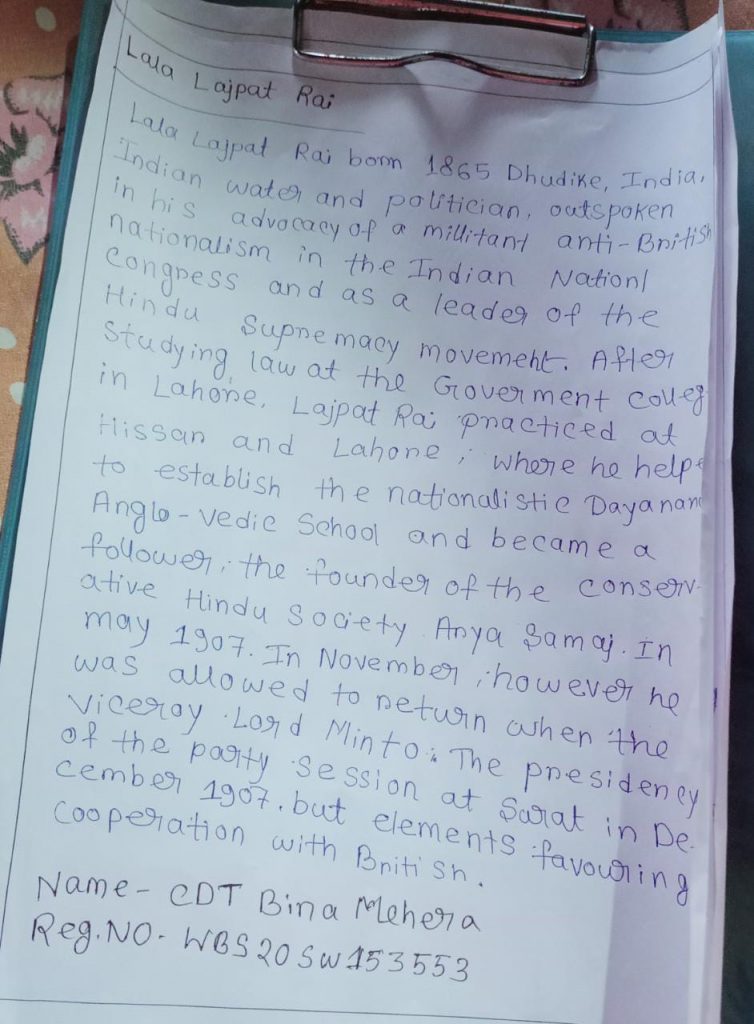 Lala Lajpat Rai
Lala Lajpat Rai born 1865 Dhudike, India,
Indian water and politician, outspoken
in his advocacy of a millitant anti-British
nationalism in the Indian Nationl
Congress and as a leader of the
Hindu Supremacy movement. After
Studying law at the Goverment colleg
in Lahore, Lajpat Rai practiced at
Hissar and Lahore, where he helpe
to establish the nationalistic Dayanan
Anglo-Vedic School and became a
follower, the founder of the conserv-
ative Hindu Society Arya Samaj. In
may 1907. In November, however he
was allowed to return when the
viceroy Lord Minto. The presidency
of the party session at Surat in De-
cember 1907. but elements favouring
cooperation with British.
Name- CDT Bina Mehera
Reg.NO- WBS20SW153553